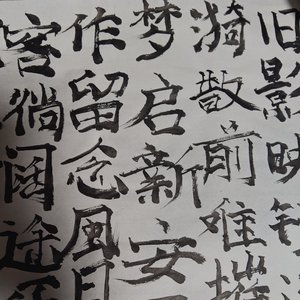 旧影映
漪散前难
梦启新安
作留念风
客徜阔途